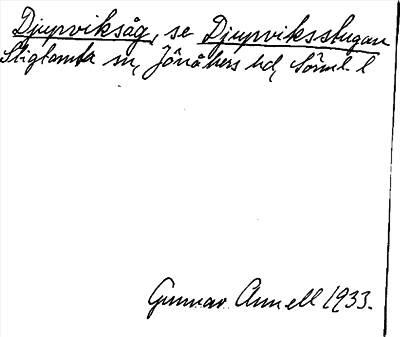 Djupviksåg, se Djupviksstugan
Stigtomta sn, Jönåkers hd, Sörml. l
Gunnar Annell 1933.